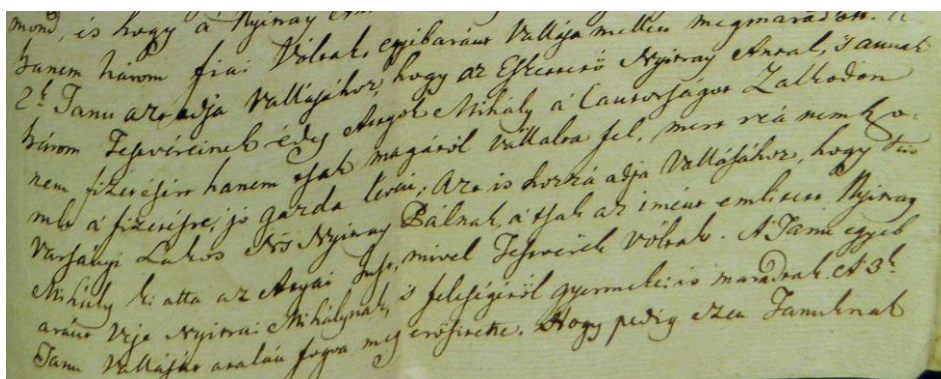 mond, is hogy a Nyirray
hanem három fiai Vóltak, egyibaránt Vallása mellett megmaradott.
2k Tanu azt adja Vallásához, hogy az Esketterő Nyirray Annak, 's annak
három Testvéreinek édes Attyok Mihály a Cautorságot Zalkodon
nem fizetésért hanem tsak magáról vállalta fel, mert reá nem szo-
rult a fizetésre, jó gazda lévén; Azt is hozzá adja Vallásához, hogy Tisz
Varsányi Lakos Nős Nyirray Pálnak, a tsak az imént emlitett Nyirray
Mihály ki atta az Atyai Just, mivel Testvérek vóltak. A Tanu egyéb
aránt Veje Nyirrai Mihálynak, is feleségéről gyermekei is maradtak. A 3k
Tanu Vallását azaláu fogva meg erősitette. Hogy pedig ezen Tanuknak